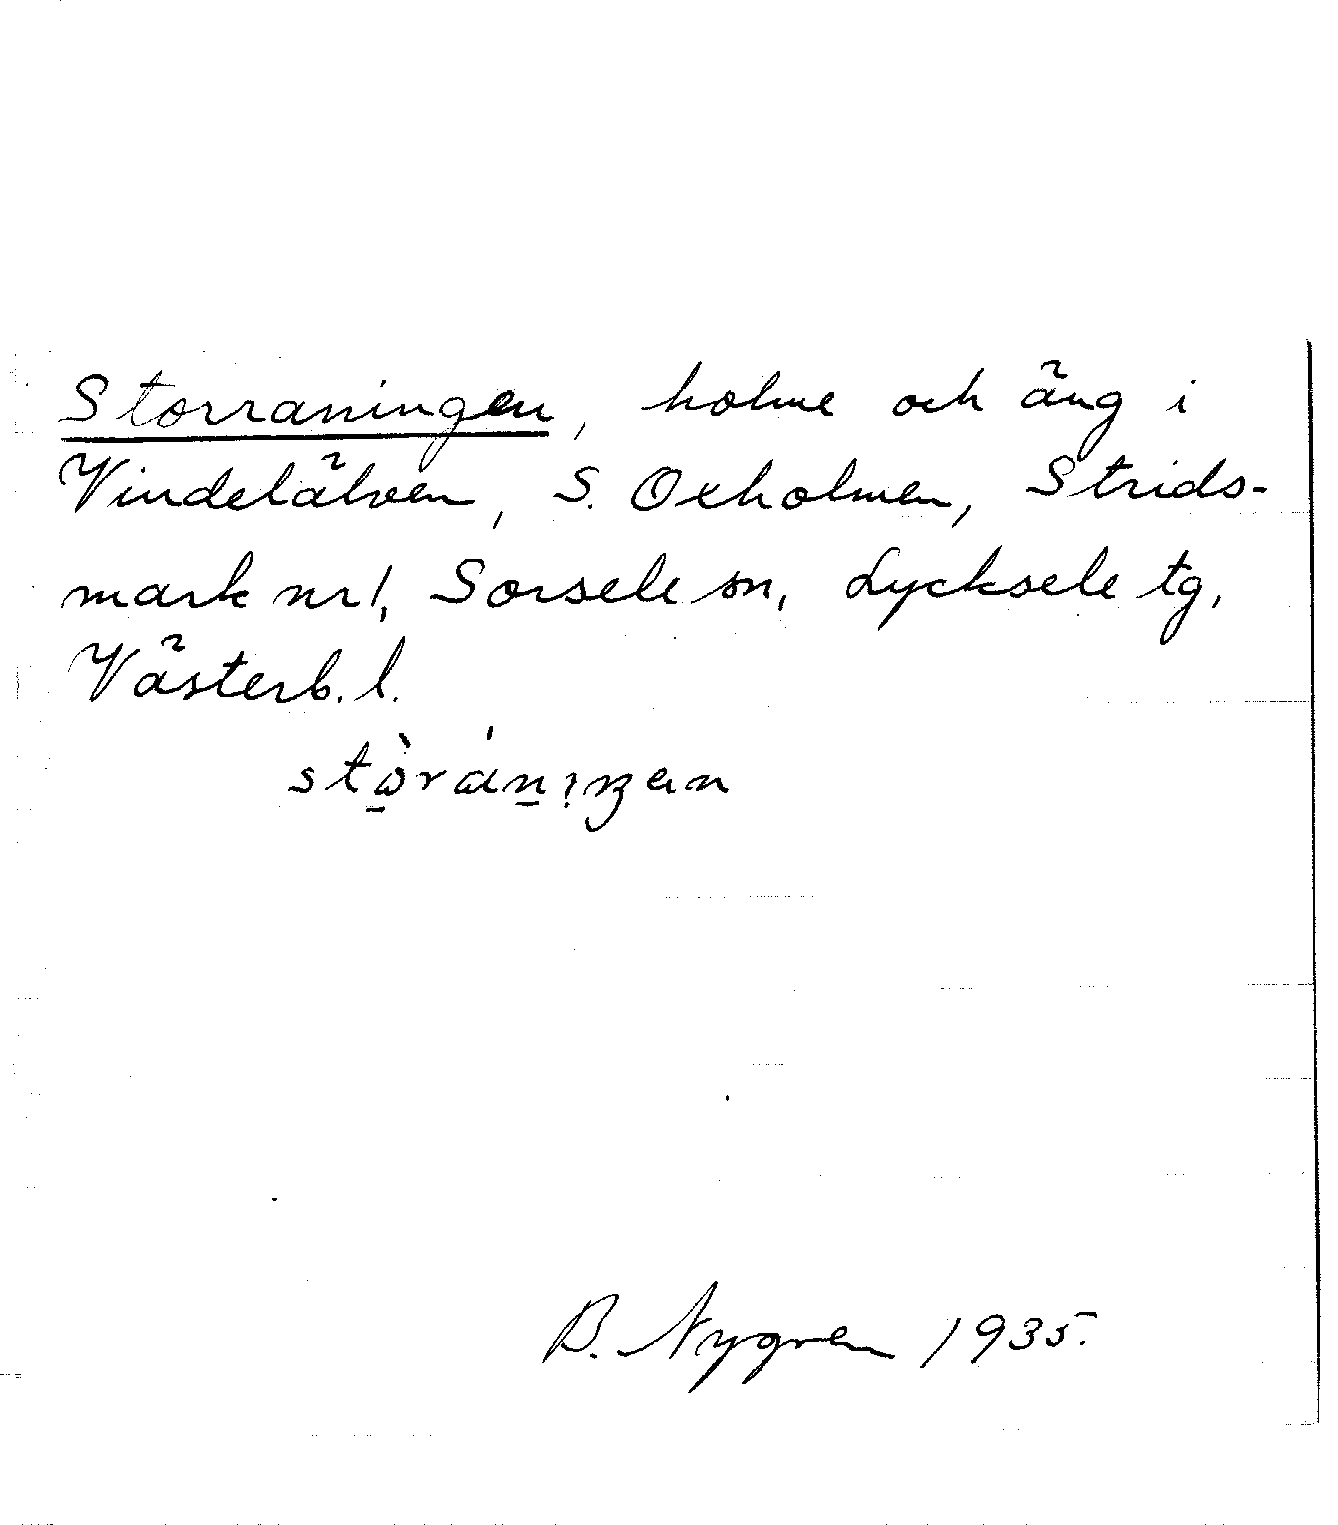 Storraningen, holme och äng i
Vindelälven, S. Oxholmen, Strids-
mark nr 1, Sorsele sn, Lycksele tg,
Västerb. l.
B. Nygren 1935.